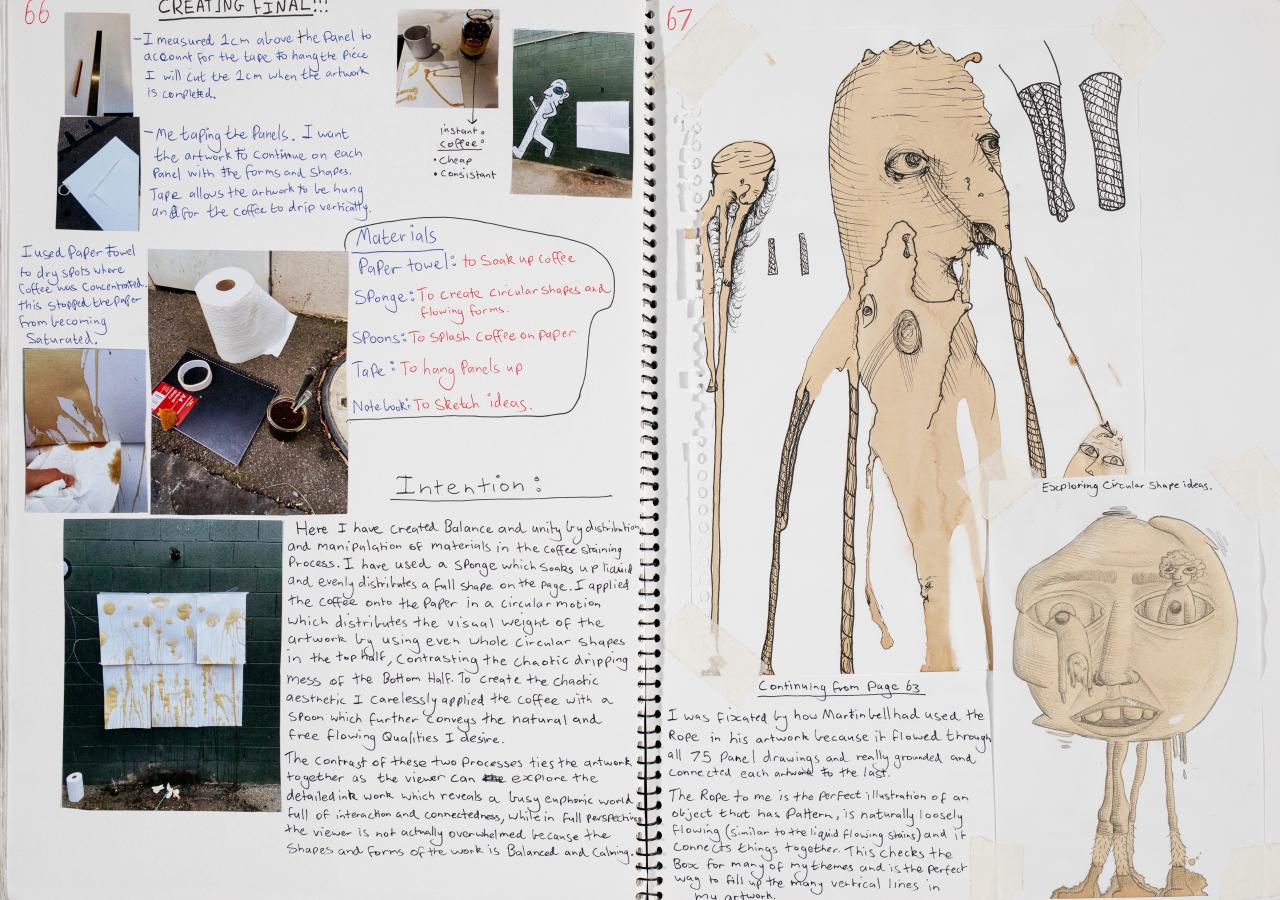 66
CREATING FINAL!!!
-I measured 1cm above the Panel to
account for the tape to hang the Piece
I will cut the 1cm when the artwork
is completed.
-Me taping the Panels. I want
the artwork to continue on each
Panel with the forms and shapes.
Tape allows the artwork to be hung
and for the coffee to drip vertically.
instant
coffee:
• Cheap
• Consistant
I used Paper towel
to dry spots where
Coffee was concentrated.
this stopped the Paper
from becoming
Saturated.
Materials
Paper towel: to Soak up coffee
Sponge: To create circular shapes and
flowing forms.
Spoons: To splash Coffee on paper
Tape: To hang Panels up
Notebook: To Sketch ideas.
Intention:
Here I have created Balance and unity by distribution
and manipulation of materials in the coffee staining
Process. I have used a sponge which soaks up liquid
and evenly distributes a full shape on the page. I applied
the coffee onto the Paper in a circular motion
which distributes the visual weight of the
artwork by using even whole circular shapes
in the top half, contrasting the chaotic dripping
mess of the Bottom Half. To create the chaotic
aesthetic I carelessly applied the coffee with a
Spoon which further conveys the natural and
free flowing Qualities I desire.
The contrast of these two Processes ties the artwork
together as the viewer can explore the
detailed ink work which reveals a busy euphoric world
full of interaction and connectedness, while in full perspective
the viewer is not actually overwhelmed because the
Shapes and forms of the work is Balanced and Calming.
67
Exploring Circular Shape ideas.
Continuing from Page 63
I was fixated by how Martin bell had used the
Rope in his artwork because it flowed through
all 75 Panel drawings and really grounded and
connected each artwork to the last.
The Rope to me is the perfect illustration of an
object that has Pattern, is naturally loosely
flowing (similar to the liquid flowing stains) and it
Connects things together. This checks the
Box for many of my themes and is the perfect
way to fill up the many vertical lines in
my artwork.